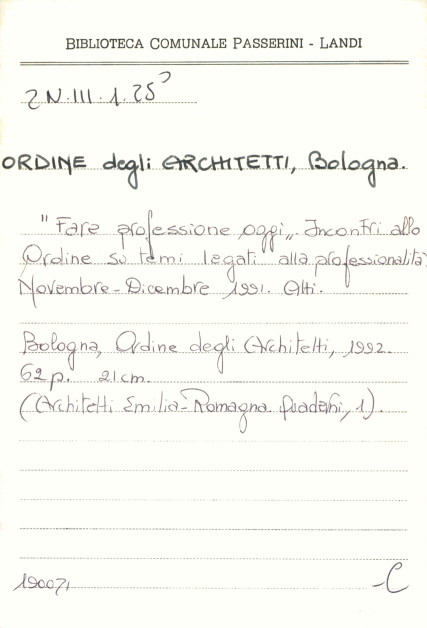 BIBLIOTECA COMUNALE PASSERINI - LANDI
2N.III.1.25⁵
ORDINE degli ARCHITETTI, Bologna.
"Fare professione oggi„. Incontri allo
Ordine su temi legati alla professionalità
Novembre-Dicembre 1991. Atti.
Bologna, Ordine degli Architetti, 1992.
62p. 21cm.
(Architetti Emilia-Romagna. Quaderni, 1).
190071
-C